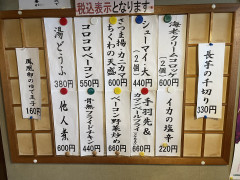 税込表示となります。
長芋の千切り
330円
海老クリームコロッケ
(2個)
600円
シューマイ・大
(2個)
440円
さつま揚 カニカマ
ちくわの天盛
600円
ゴロゴロベーコン
550円
湯どうふ
380円
イカの塩辛
220円
手羽先&
660円
ベーコン野菜炒め
660円
骨無フライドチキン
440円
他人煮
600円
鳳凰卵のゆで玉子
160円